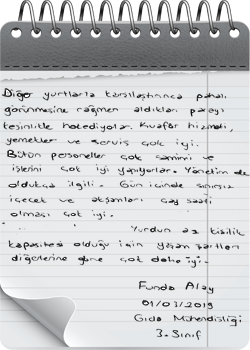 Diğer yurtlarla karşılaştırınca pahalı
görünmesine rağmen aldıkları parayı
kesinlikle hakediyolar. Kuaför hizmeti,
yemekler ve servis çok iyi.
Bütün personeller çok samimi ve
işlerini çok iyi yapıyorlar. Yönetim de
oldukça ilgili. Gün içinde sınırsız
içecek ve akşamları çay saati
olması çok iyi.
Yurdun az kişilik
kapasitesi olduğu için yaşam şartları
diğerlerine göre çok daha iyi.
Funda Alay
01/03/2019
Gıda Mühendisliği
3. Sınıf